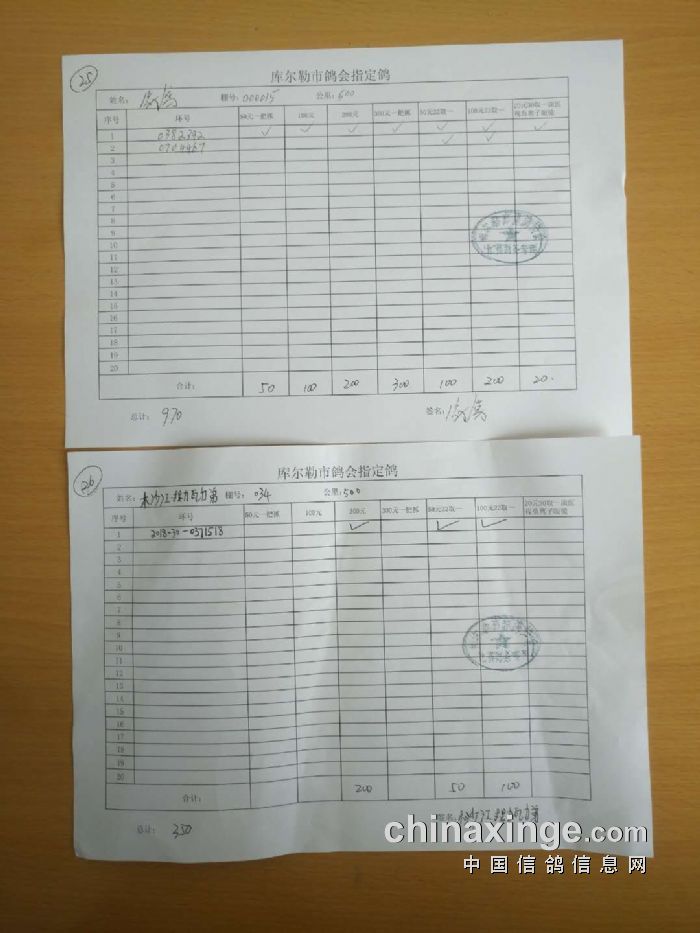 25
库尔勒市鸽会指定鸽
姓名： 棚号：000015 公里：600
序号 环号 50元一把抓 100元 200元 300元一把抓 50元22取一 100元22取一
1 0382392 ✓ ✓ ✓ ✓ ✓ ✓ ✓
2 0704467 ✓ ✓
3
4
5
6
7
8
9
10
11
12
13
14
15
16
17
18
19
20
合计： 50 100 200 300 100 200 20
总计： 970 签名：
26
库尔勒市鸽会指定鸽
姓名： 棚号： 034 公里：500
序号 环号 50元一把抓 100元 200元 300元一把抓 50元22取一 100元22取一
1 2018-30-0371518 ✓ ✓ ✓
2
3
4
5
6
7
8
9
10
11
12
13
14
15
16
17
18
19
20
合计： 200 50 100
总计： 350 签名：
chinaxinge.com
中国信鸽信息网